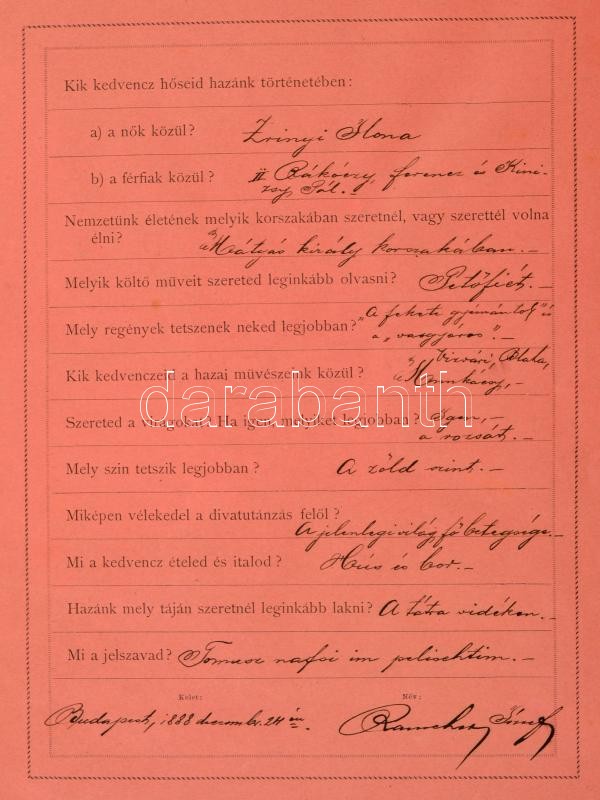 Kik kedvencz hőseid hazánk történetében:
a) a nők közül? Zrinyi Ilona
b) a férfiak közül? II Rákóczy ferencz és Kini-
zsy Pál.–
Nemzetünk életének melyik korszakában szeretnél, vagy szerettél volna
élni? Mátyás király korszakában.–
Melyik költő műveit szereted leginkább olvasni? Petőfiét.–
"A fekete gyémántok" és
Mely regények tetszenek neked legjobban? a "vasgyáros".–
Vizvári, Blaha,
Kik kedvenczeid a hazai művészeink közül? Munkácsy,–
darabanth
Szereted a virágokat? Ha igen, melyiket legjobban? Igen,–
a rozsát.–
Mely szin tetszik legjobban? A zöld szint.–
Miképen vélekedel a divatutánzás felől?
A jelenlegi világ fő betegsége.–
Mi a kedvencz ételed és italod? Hús és bor.–
Hazánk mely táján szeretnél leginkább lakni? A tátra vidéken.–
Mi a jelszavad? Tomusz nafsi im pelischtim.–
Kelet: Név:
Budapest, 1888 december 24 én. József